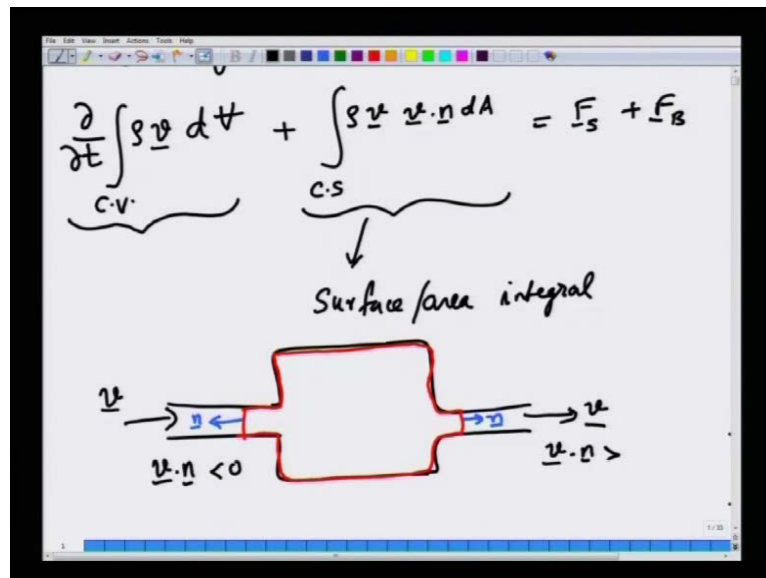 File Edit View Insert Actions Tools Help
∂/∂t ∫ ρ v dV + ∫ ρ v v.n dA = F_S + F_B
C.V. C.S
Surface/area integral
v n n v
v.n <0 v.n >
1/33
1